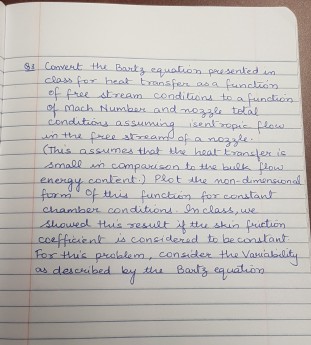 Q3 Convert the Bartz equation presented in
class for heat transfer as a function
of free stream conditions to a function
of Mach Number and nozzle total
conditions assuming isentropic flow
in the free stream of a nozzle.
(This assumes that the heat transfer is
small in comparison to the bulk flow
energy content.) Plot the non-dimensional
form of this function for constant
chamber conditions. In class, we
showed this result if the skin friction
coefficient is considered to be constant
For this problem, consider the Variability
as described by the Bartz equation